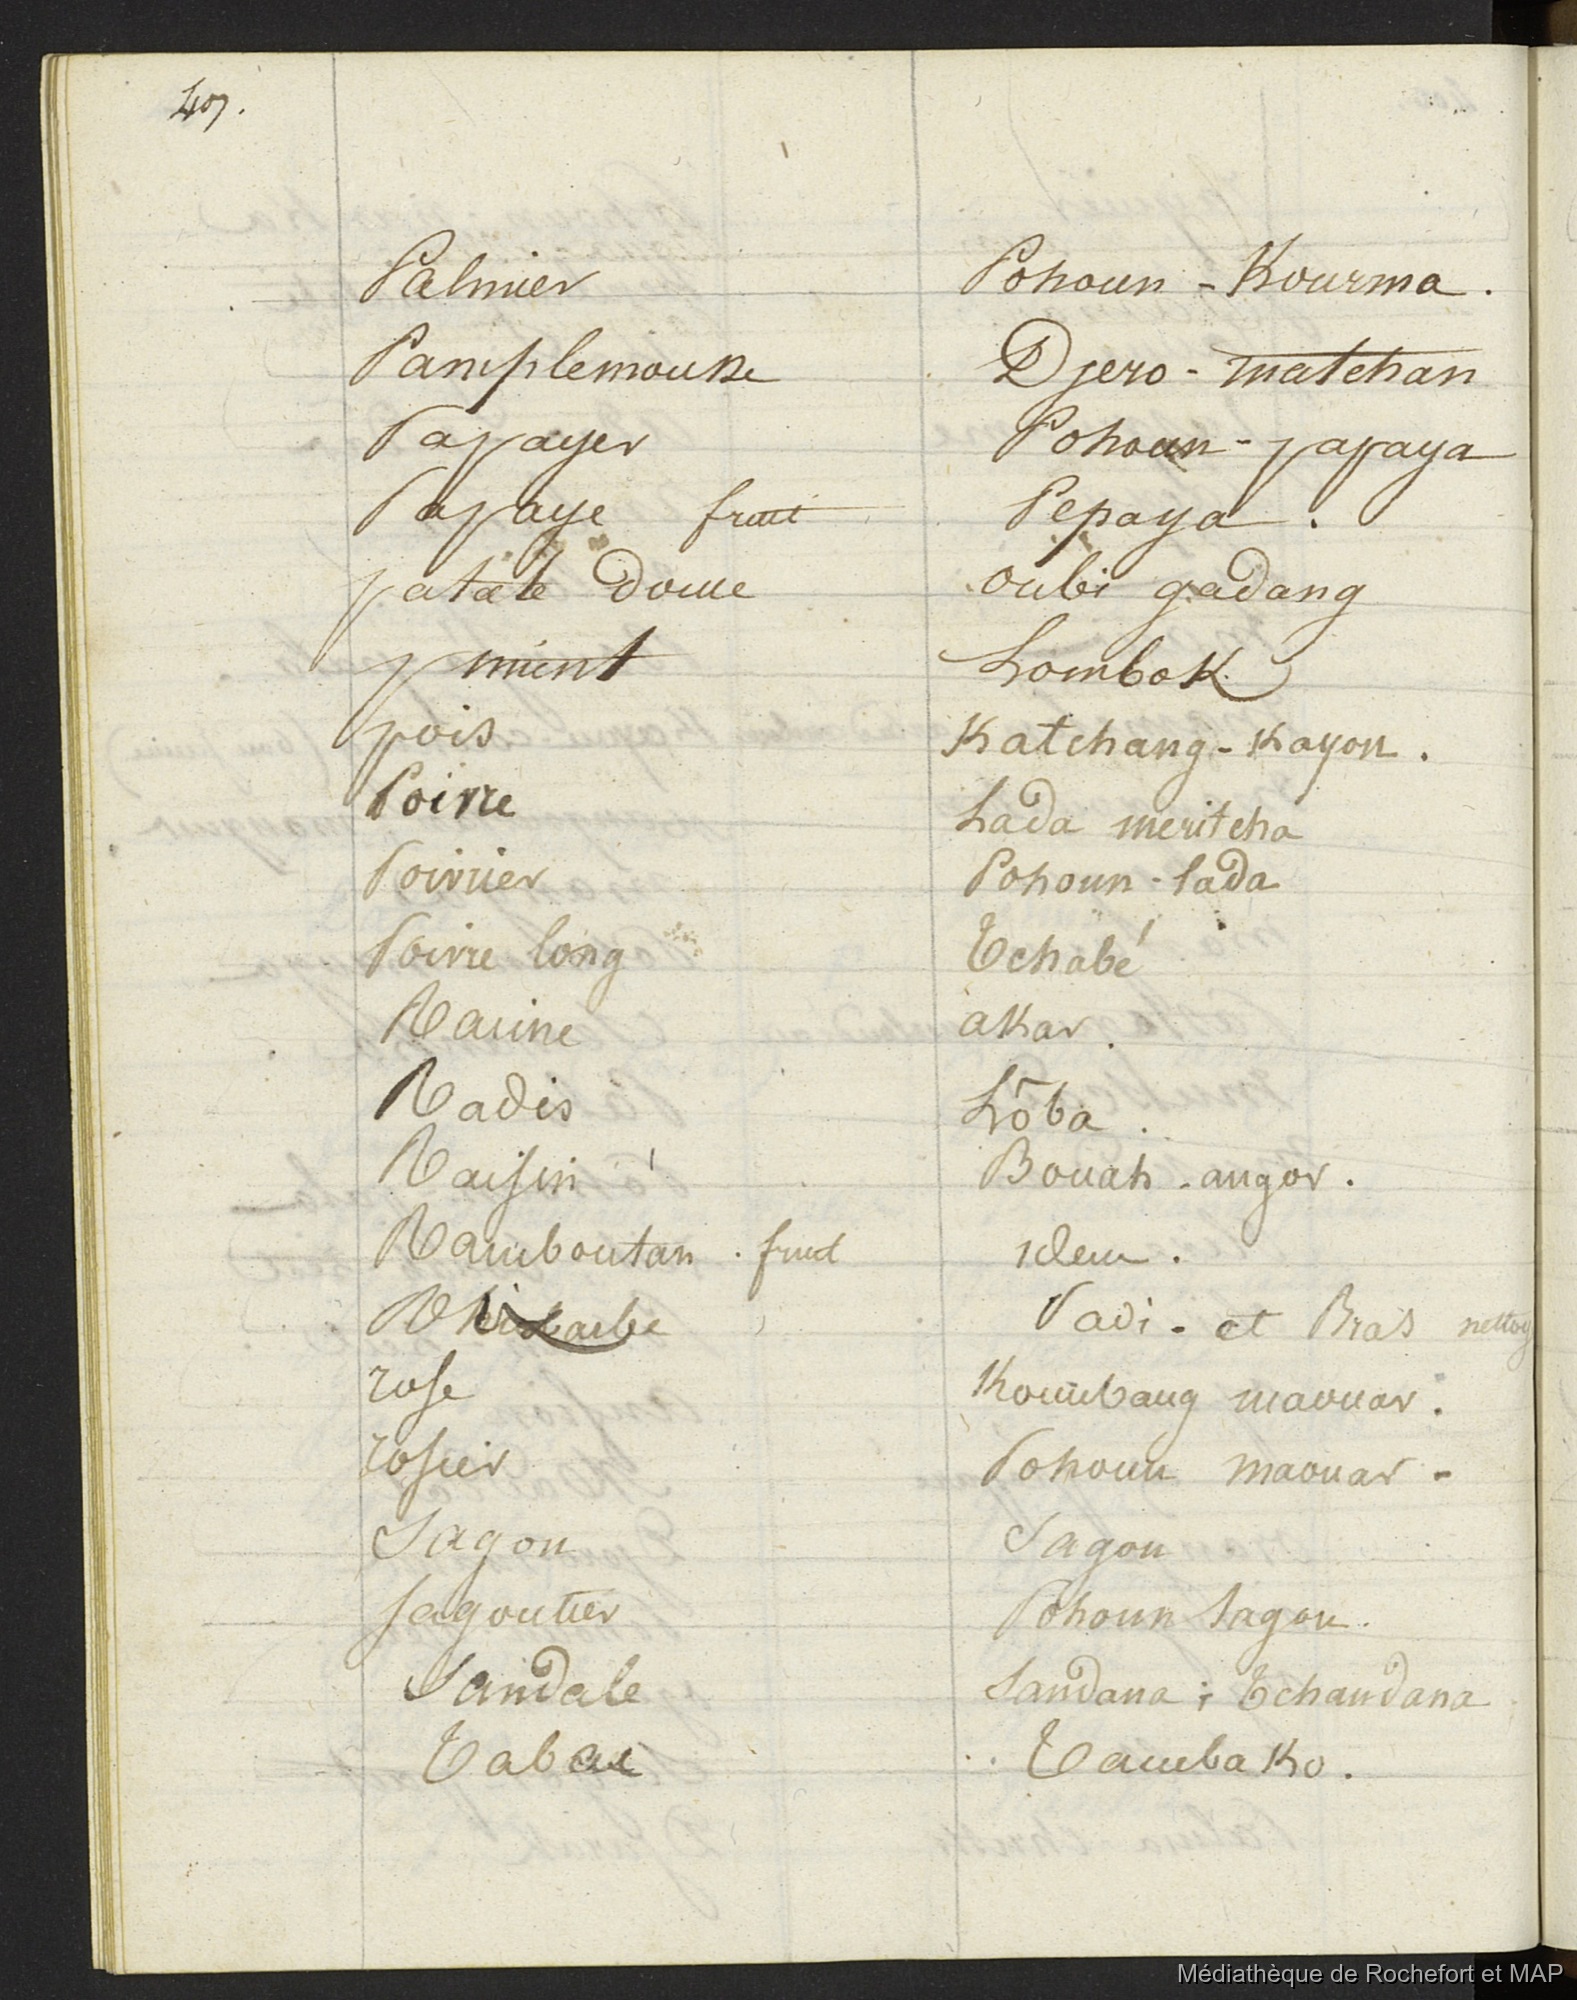 407.
Palmier Pohoun - Kourma.
Pamplemousse Djero - matchan
Papayer Pohoun - papaya
Papaye fruit Pepaya.
patate douce oubi gadang
pment Lombok
pois Katchang - Kayou.
Poivre Lada meritcha
Poivrier Pohoun - lada
Poivre long Tchabé
Racine akar.
Radis Lôba.
Raisin Bouah - angor.
Ramboutan. fruit idem.
Padi - et Bras nettoy
rose Koumbang maouar.
rosier Pohoun maouar -
Sagou Sagou
sagoutier Pohoun sagou.
Sandale Sandana; Tchandana
Tabac Tambako.
Médiathèque de Rochefort et MAP